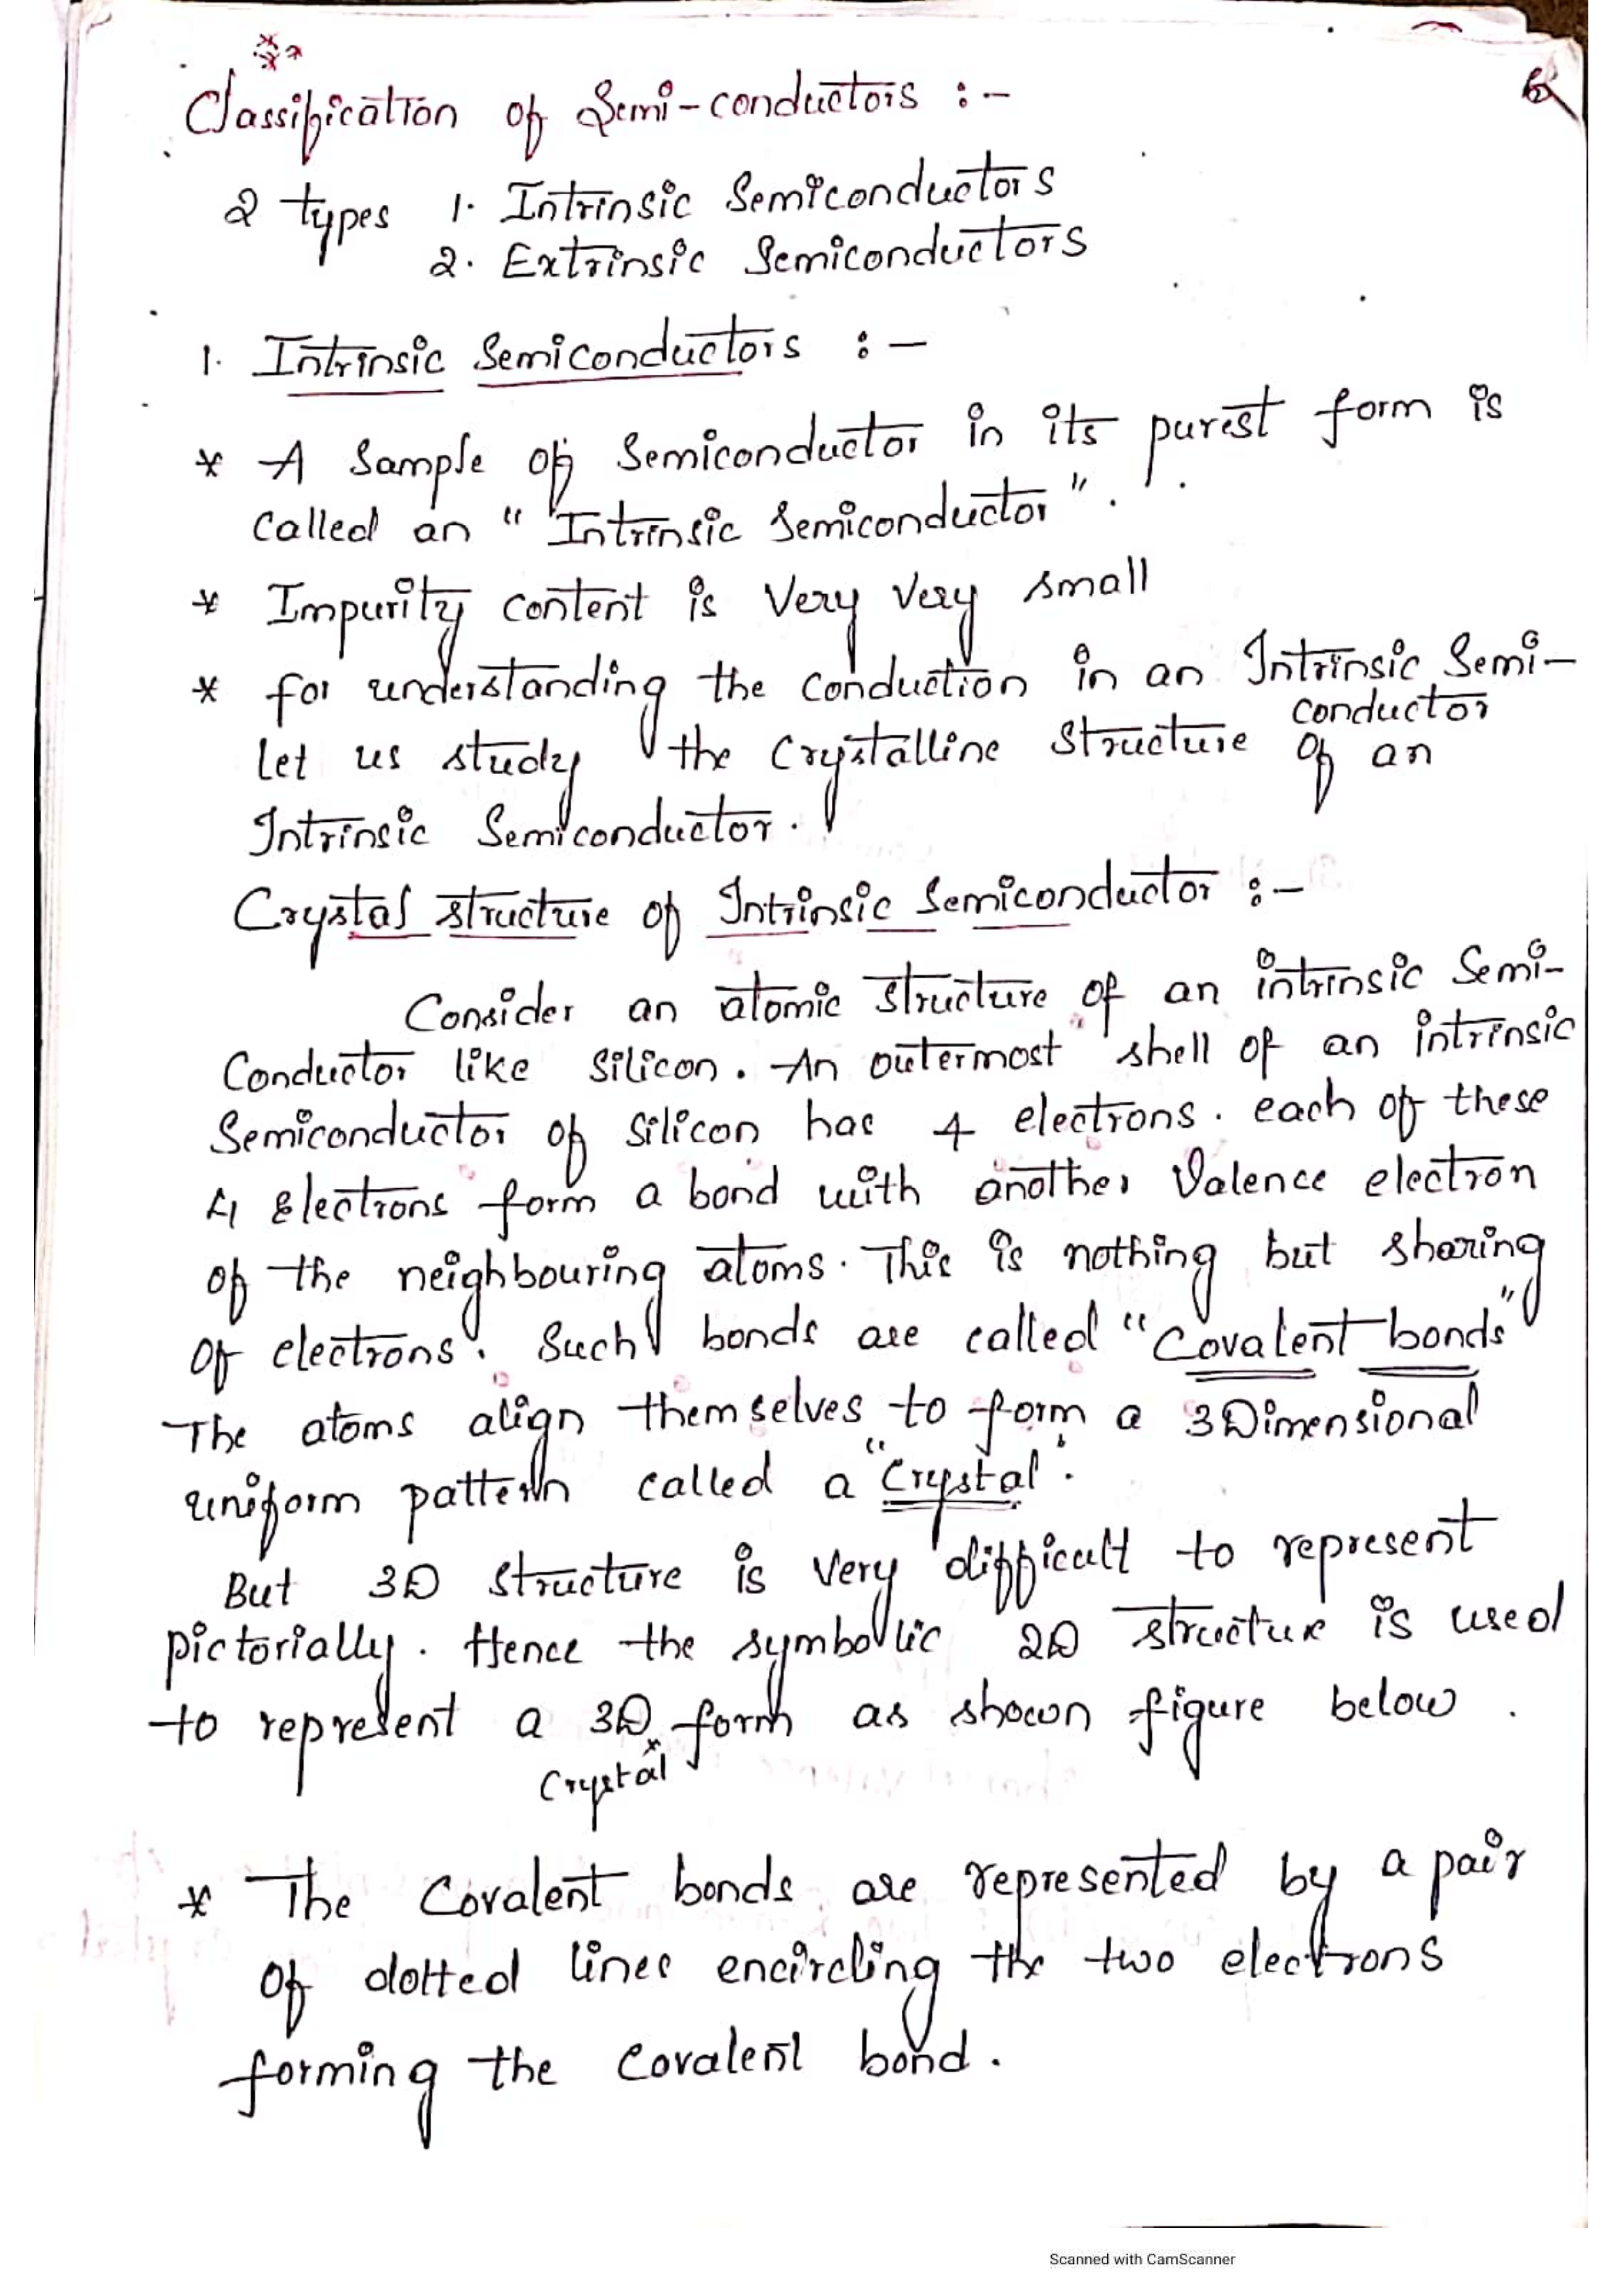 Classification of Semi-conductors :-
2 types 1. Intrinsic Semiconductors
2. Extrinsic Semiconductors
1. Intrinsic Semiconductors :-
* A Sample of Semiconductor in its purest form is
called an "Intrinsic Semiconductor".
* Impurity content is Very Very small
* for understanding the conduction in an Intrinsic Semi-
conductor
let us study the Crystalline Structure of an
Intrinsic Semiconductor.
Crystal structure of Intrinsic Semiconductor :-
Consider an atomic structure of an intrinsic Semi-
Conductor like Silicon. An outermost shell of an intrinsic
Semiconductor of Silicon has 4 electrons. each of these
4 Electrons form a bond with another Valence electron
of the neighbouring atoms. This is nothing but sharing
of electrons. Such bonds are called "Covalent bonds"
The atoms align themselves to form a 3Dimensional
uniform pattern called a "Crystal".
But 3D structure is Very difficult to represent
pictorially. Hence the symbollic 2D structure is used
to represent a 3D form as shown figure below.
Crystal
* The Covalent bonds are represented by a pair
of dotted lines encircling the two electrons
forming the covalent bond.
Scanned with CamScanner